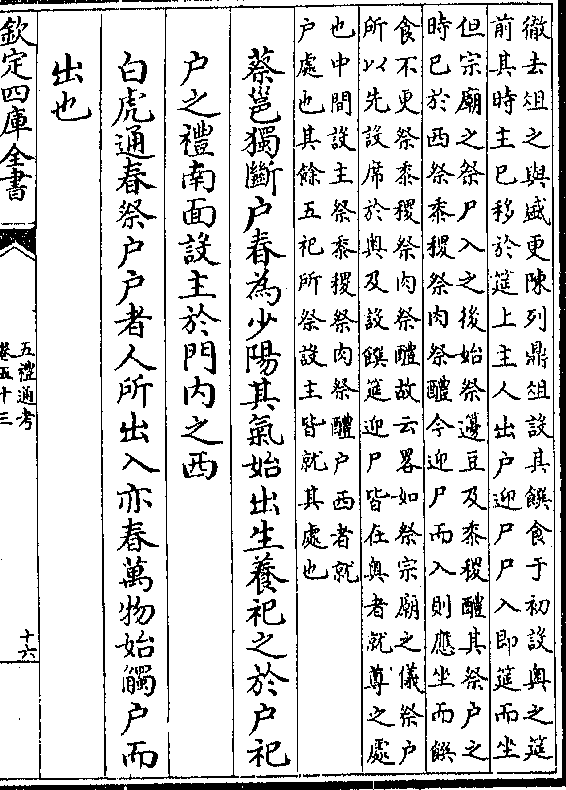 徹去俎之與盛更陳列鼎俎設其饌食于初設奥之筵
前其時主已移於筵上主人出户迎尸尸入即筵而坐
但宗廟之祭尸入之後始祭籩豆及黍稷醴其祭户之
時已於西祭黍稷祭肉祭醴今迎尸而入則應坐而饌
食不更祭黍稷祭肉祭醴故云畧如祭宗廟之儀祭户
所以先設席於奥及設饌筵迎尸皆在奥者就尊之處
也中間設主祭黍稷祭肉祭醴户西者就
户處也其餘五祀所祭設主皆就其處也
蔡邕獨斷户春為少陽其氣始出生養祀之於户祀
户之禮南面設主於門内之西
白虎通春祭户户者人所出入亦春萬物始觸户而
出也
欽定四庫全書
五禮通考
卷五十三
十六